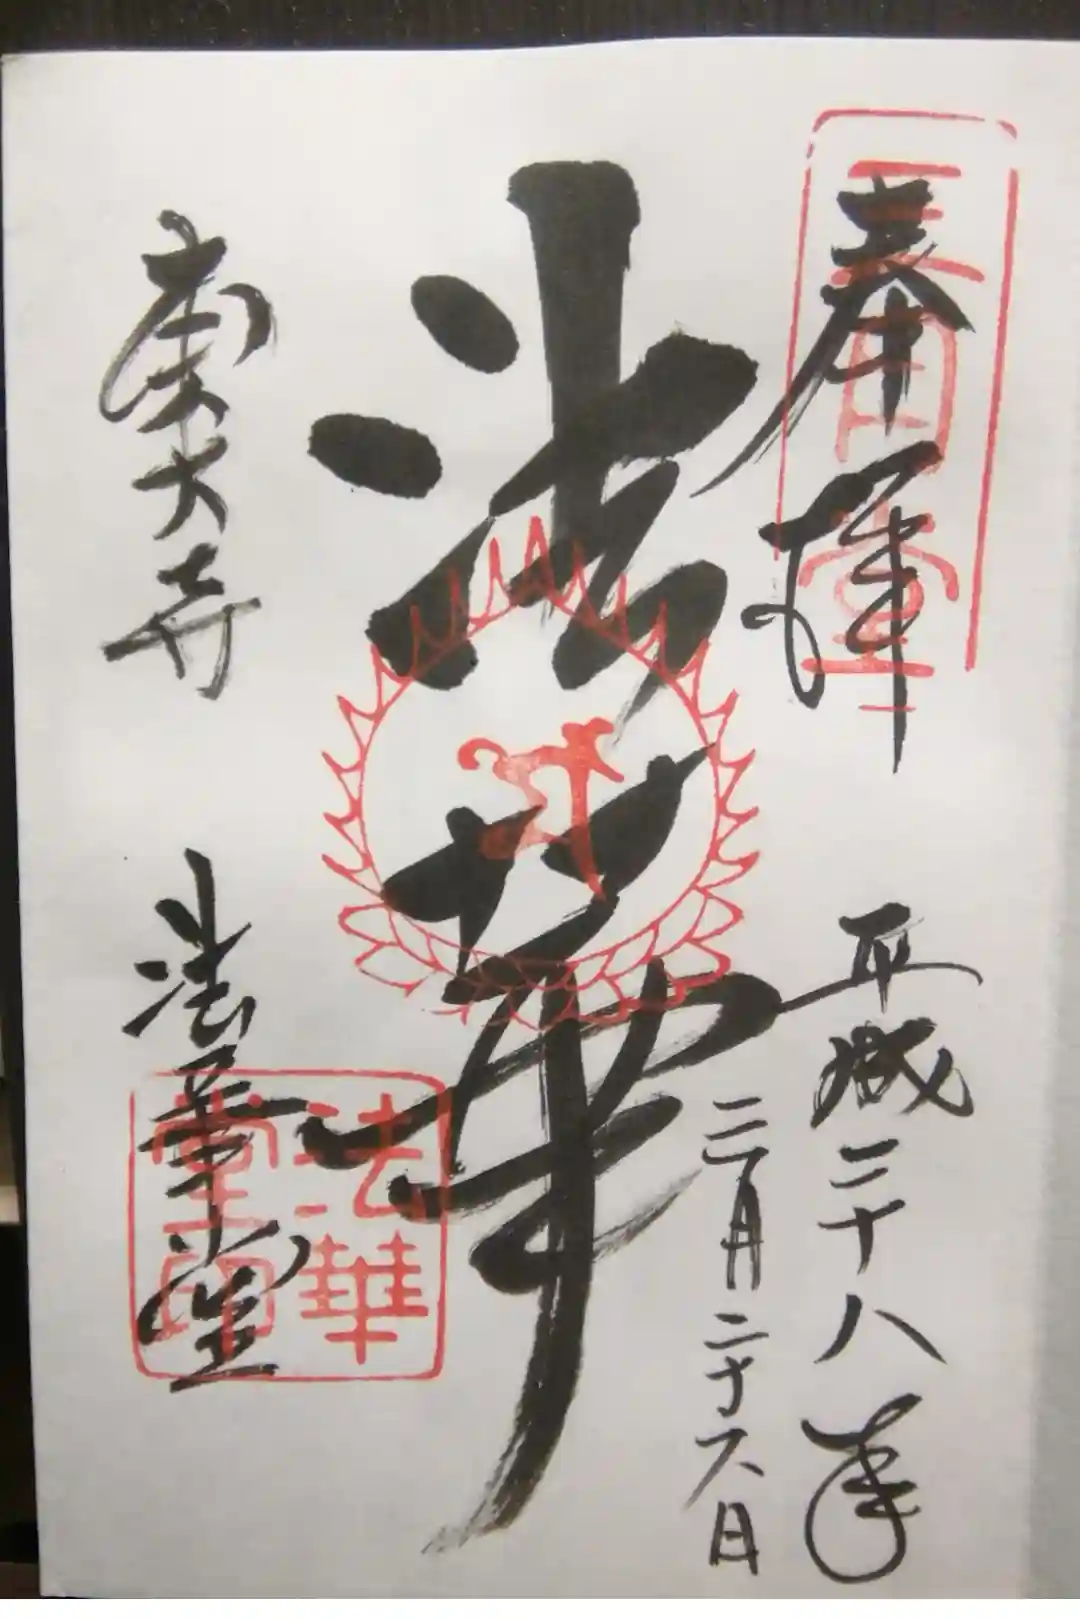 奉拝
三月堂
平成二十八年
三月二十六日
法華
東大寺
法華堂
法華堂印